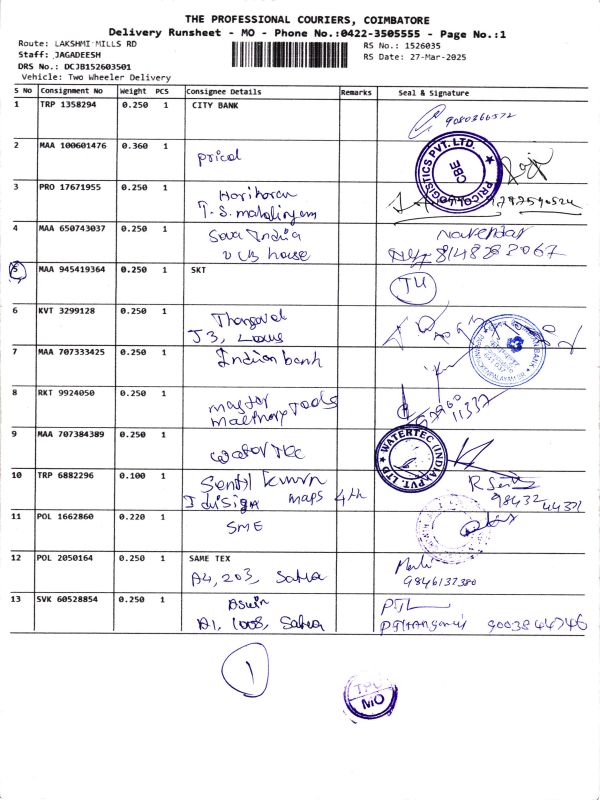 THE PROFESSIONAL COURIERS, COIMBATORE
Delivery Runsheet - MO - Phone No.:0422-3505555 - Page No.:1
Route: LAKSHMI MILLS RD
RS No.: 1526035
Staff: JAGADEESH
RS Date: 27-Mar-2025
DRS No.: DCJB152603501
Vehicle: Two Wheeler Delivery
S No Consignment No Weight PCS Consignee Details Remarks Seal & Signature
1 TRP 1358294 0.250 1 CITY BANK
2 MAA 100601476 0.360 1 pricol
PRICOL LOGISTICS PVT. LTD. CBE
3 PRO 17671955 0.250 1 Hariharan
T.S. mahalingam
4 MAA 650743037 0.250 1 Sova India Narendar
V LB house 8148283067
5 MAA 945419364 0.250 1 SKT
6 KVT 3299128 0.250 1 Thangavel
J3, Lotus
7 MAA 707333425 0.250 1 Indian bank
INDIAN BANK
8 RKT 9924050 0.250 1 master Tools
11337
9 MAA 707384389 0.250 1 water Tec
WATERTEC (INDIA) PVT. LTD
10 TRP 6882296 0.100 1 Sentil kumar
maps 4th
98432 44321
11 POL 1662860 0.220 1 SME
12 POL 2050164 0.250 1 SAME TEX
A4, 203, Satva 9846137380
13 SVK 60528854 0.250 1 Aswin
A1, 1008, Satva 9003844746
1
TPC
MO